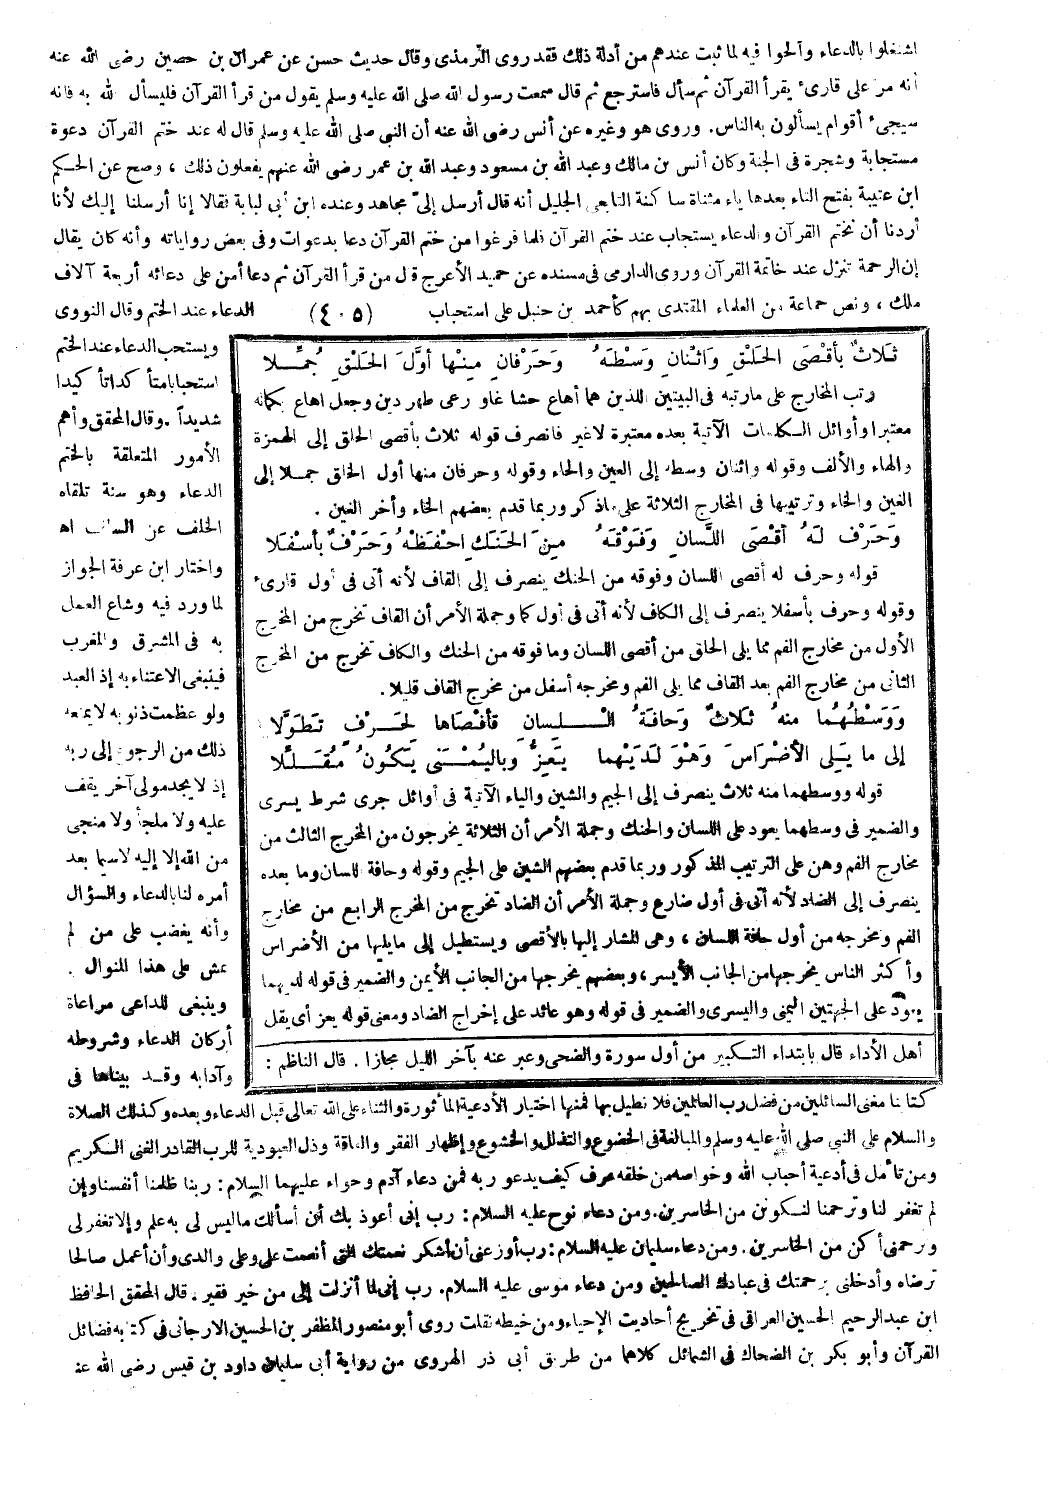 اشتغلوا بالدعاء وألحوا فيه لما ثبت عندهم من أدلة ذلك فقد روى الترمذى وقال حديث حسن عن عمران بن حصين رضى الله عنه
أنه مر على قارىء يقرأ القرآن ثم سأل فاسترجع ثم قال سمعت رسول الله صلى الله عليه وسلم يقول من قرأ القرآن فليسأل الله به فانه
سيجىء أقوام يسألون به الناس. وروى هو وغيره عن أنس رضى الله عنه أن النبى صلى الله عليه وسلم قال له عند ختم القرآن دعوة
مستجابة وشجرة فى الجنة وكان أنس بن مالك وعبد الله بن مسعود وعبد الله بن عمر رضى الله عنهم يفعلون ذلك ، وصح عن الحكم
ابن عتيبة بفتح التاء بعدها ياء مثناة ساكنة التابعى الجليل أنه قال أرسل إلىّ مجاهد وعنده ابن أبى لبابة فقالا إنا أرسلنا إليك لأنا
أردنا أن نختم القرآن والدعاء يستجاب عند ختم القرآن فلما فرغوا من ختم القرآن دعا بدعوات وفى بعض رواياته وأنه كان يقال
إن الرحمة تنزل عند خاتمة القرآن وروى الدارمى فى مسنده عن حميد الأعرج قال من قرأ القرآن ثم دعا أمن على دعائه أربعة آلاف
ملك ، ونص جماعة من العلماء المقتدى بهم كأحمد بن حنبل على استحباب (٤٠٥) الدعاء عند الختم وقال النووى
ويستحب الدعاء عند الختم
استحبابا متأكدا تأكيدا
شديداً . وقال المحقق وأهم
الأمور المتعلقة بالختم
الدعاء وهو سنة تلقاه
الخلف عن السلف اه
واختار ابن عرفة الجواز
لما ورد فيه وشاع العمل
به فى المشرق والمغرب
فينبغى الاعتناء به إذ العبد
ولو عظمت ذنوبه لا يمنعه
ذلك من الرجوع إلى ربه
إذ لا يجد مولى آخر يقف
عليه ولا ملجأ ولا منجى
من الله إلا إليه لاسيما بعد
أمره لنا بالدعاء والسؤال
وأنه يغضب على من لم
يمش على هذا المنوال .
وينبغى للداعى مراعاة
أركان الدعاء وشروطه
وآدابه وقد بيناها فى
ثَلَاثٌ بأَقْصَى الحَلْقِ وَاثْنَانِ وَسْطَهُ وَحَرْفَانِ مِنْها أوَّلَ الحَلْقِ جُمِّلا
رتب المخارج على ما رتبه فى البيتين اللذين هما أهاع حشا غاو رعى طهر دين وجعل أهاع بكماله
معتبرا وأوائل الكلمات الآتية بعده معتبرة لا غير فانصرف قوله ثلاث بأقصى الحلق إلى الهمزة
والهاء والألف وقوله واثنان وسطه إلى العين والحاء وقوله وحرفان منها أول الحلق جملا إلى
الغين والخاء وترتيبها فى المخارج الثلاثة على ما ذكر وربما قدم بعضهم الخاء وأخر الغين .
وَحَرْف لَهُ أَقْصَى اللَّسانِ وَفَوْقَهُ مِنَ الحَنَكِ احْفَظْهُ وَحَرْفٌ بأَسْفَلا
قوله وحرف له أقصى اللسان وفوقه من الحنك ينصرف إلى القاف لأنه أتى فى أول قارىء
وقوله وحرف بأسفلا ينصرف إلى الكاف لأنه أتى فى أول كما وجملة الأمر أن القاف تخرج من المخرج
الأول من مخارج الفم مما يلى الحلق من أقصى اللسان وما فوقه من الحنك والكاف تخرج من المخرج
الثانى من مخارج الفم بعد القاف مما يلى الفم ومخرجه أسفل من مخرج القاف قليلا .
وَوَسْطُهُما مِنْهُ ثَلاثٌ وَحافَةُ الْـلِسانِ فأَقْصَاها لحَرْفٍ تَطَوَّلا
إلى ما يَلِى الأضْرَاسَ وَهْوَ لَدَيْهِما يَعِزُّ وبالْيُمْنَى يَكُونُ مُقَلَّلا
قوله ووسطهما منه ثلاث ينصرف إلى الجيم والشين والياء الآتية فى أوائل جرى شرط يسرى
والضمير فى وسطهما يعود على اللسان والحنك وجملة الأمر أن الثلاثة يخرجون من المخرج الثالث من
مخارج الفم وهن على الترتيب المذكور وربما قدم بعضهم الشين على الجيم وقوله وحافة اللسان وما بعده
ينصرف إلى الضاد لأنه أتى فى أول ضارع وجملة الأمر أن الضاد تخرج من المخرج الرابع من مخارج
الفم ومخرجه من أول حافة اللسان ، وهى المشار إليها بالأقصى ويستطيل إلى ما يليها من الأضراس
وأكثر الناس يخرجها من الجانب الأيسر ، وبعضهم يخرجها من الجانب الأيمن والضمير فى قوله لديهما
يعود على الجهتين اليمنى واليسرى والضمير فى قوله وهو عائد على إخراج الضاد ومعنى قوله يعز أى يقل
أهل الأداء قال بابتداء التكبير من أول سورة والضحى وعبر عنه بآخر الليل مجازا . قال الناظم :
كتابنا مغنى السائلين من فضل رب العالمين فلا نطيل بها فمنها اختيار الأدعية المأثورة والثناء على الله تعالى قبل الدعاء وبعده وكذلك الصلاة
والسلام على النبى صلى الله عليه وسلم والمبالغة فى الخضوع والتذلل والخشوع وإظهار الفقر والفاقة وذل العبودية للرب القادر الغنى الكريم
ومن تأمل فى أدعية أحباب الله وخواصه من خلقه عرف كيف يدعو ربه فمن دعاء آدم وحواء عليهما السلام : ربنا ظلمنا أنفسنا وإن
لم تغفر لنا وترحمنا لنكونن من الخاسرين . ومن دعاء نوح عليه السلام : رب إنى أعوذ بك أن أسألك ما ليس لى به علم وإلا تغفر لى
وترحمنى أكن من الخاسرين . ومن دعاء سليمان عليه السلام : رب أوزعنى أن أشكر نعمتك التى أنعمت على وعلى والدى وأن أعمل صالحا
ترضاه وأدخلنى برحمتك فى عبادك الصالحين ومن دعاء موسى عليه السلام . رب إنى لما أنزلت إلى من خير فقير . قال المحقق الحافظ
ابن عبد الرحيم الحسين العراقى فى تخريج أحاديث الإحياء ومن خيطه نقلت روى أبو منصور المظفر بن الحسين الارجانى فى كتابه فضائل
القرآن وأبو بكر بن الضحاك فى الشمائل كلاهما من طريق أبى ذر الهروى من رواية أبى سليمان داود بن قيس رضى الله عنه